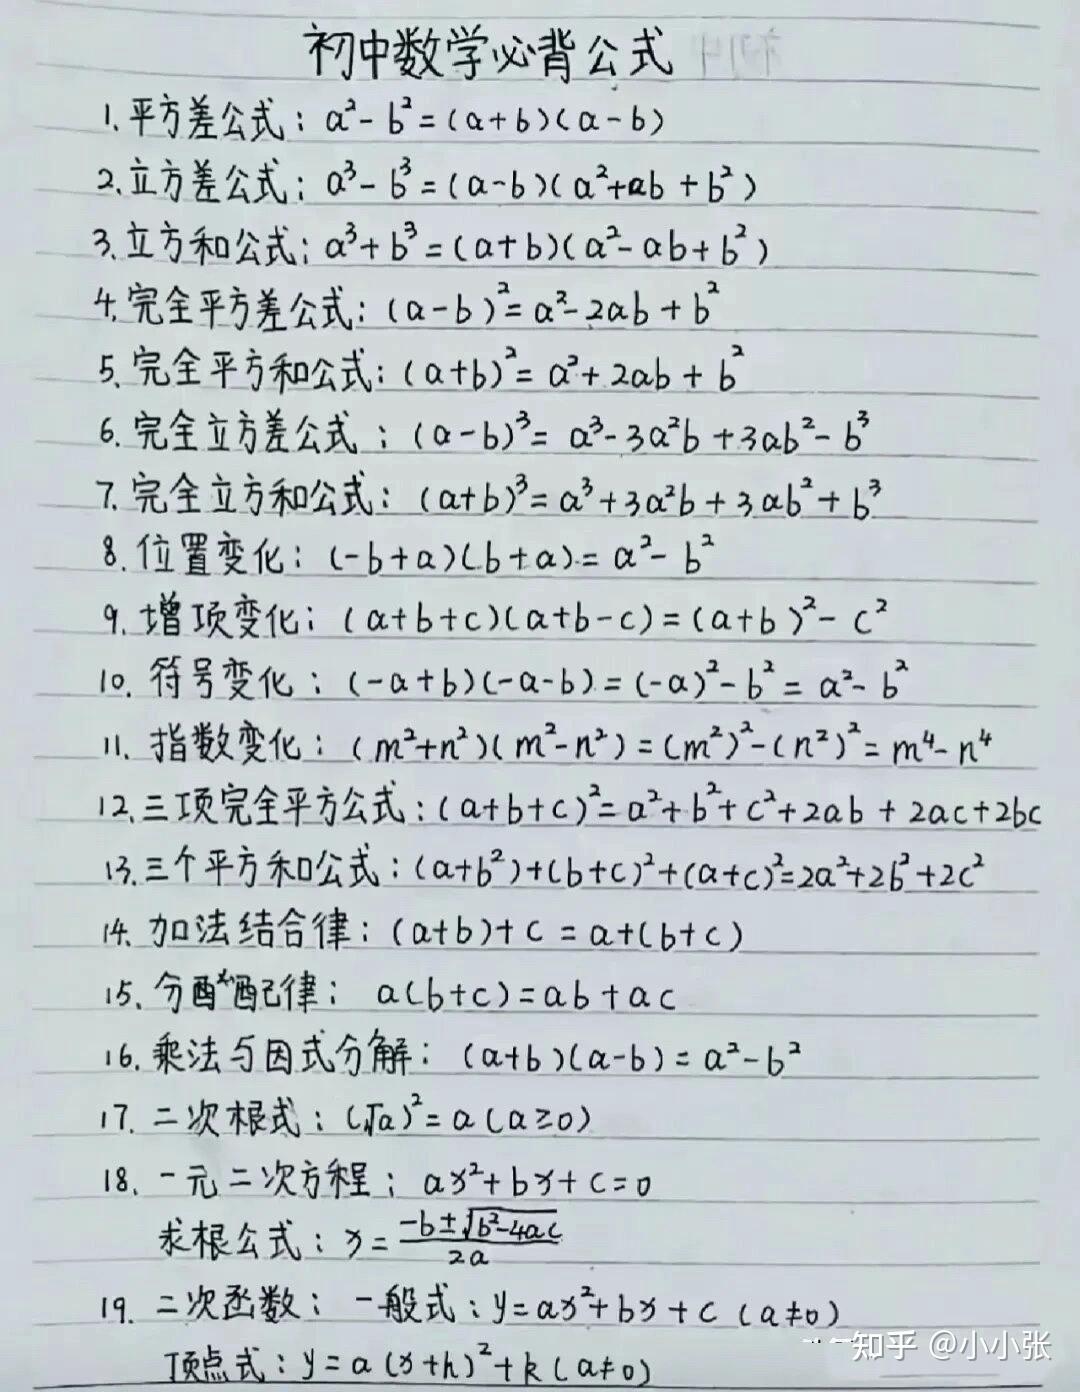 初中数学必背公式
1.平方差公式：a²-b²=(a+b)(a-b)
2.立方差公式：a³-b³=(a-b)(a²+ab+b²)
3.立方和公式：a³+b³=(a+b)(a²-ab+b²)
4.完全平方差公式：(a-b)²=a²-2ab+b²
5.完全平方和公式：(a+b)²=a²+2ab+b²
6.完全立方差公式：(a-b)³=a³-3a²b+3ab²-b³
7.完全立方和公式：(a+b)³=a³+3a²b+3ab²+b³
8.位置变化：(-b+a)(b+a)=a²-b²
9.增项变化：(a+b+c)(a+b-c)=(a+b)²-c²
10.符号变化：(-a+b)(-a-b)=(-a)²-b²=a²-b²
11.指数变化：(m²+n²)(m²-n²)=(m²)²-(n²)²=m⁴-n⁴
12.三项完全平方公式：(a+b+c)²=a²+b²+c²+2ab+2ac+2bc
13.三个平方和公式：(a+b²)+(b+c)²+(a+c)²=2a²+2b²+2c²
14.加法结合律：(a+b)+c=a+(b+c)
15.分配律：a(b+c)=ab+ac
16.乘法与因式分解：(a+b)(a-b)=a²-b²
17.二次根式：(√a)²=a(a≥0)
18.一元二次方程：ax²+bx+c=0
求根公式：x=(-b±√(b²-4ac))/2a
19.二次函数：一般式：y=ax²+bx+c(a≠0)
顶点式：y=a(x+h)²+k(a≠0)
知乎 @小小张